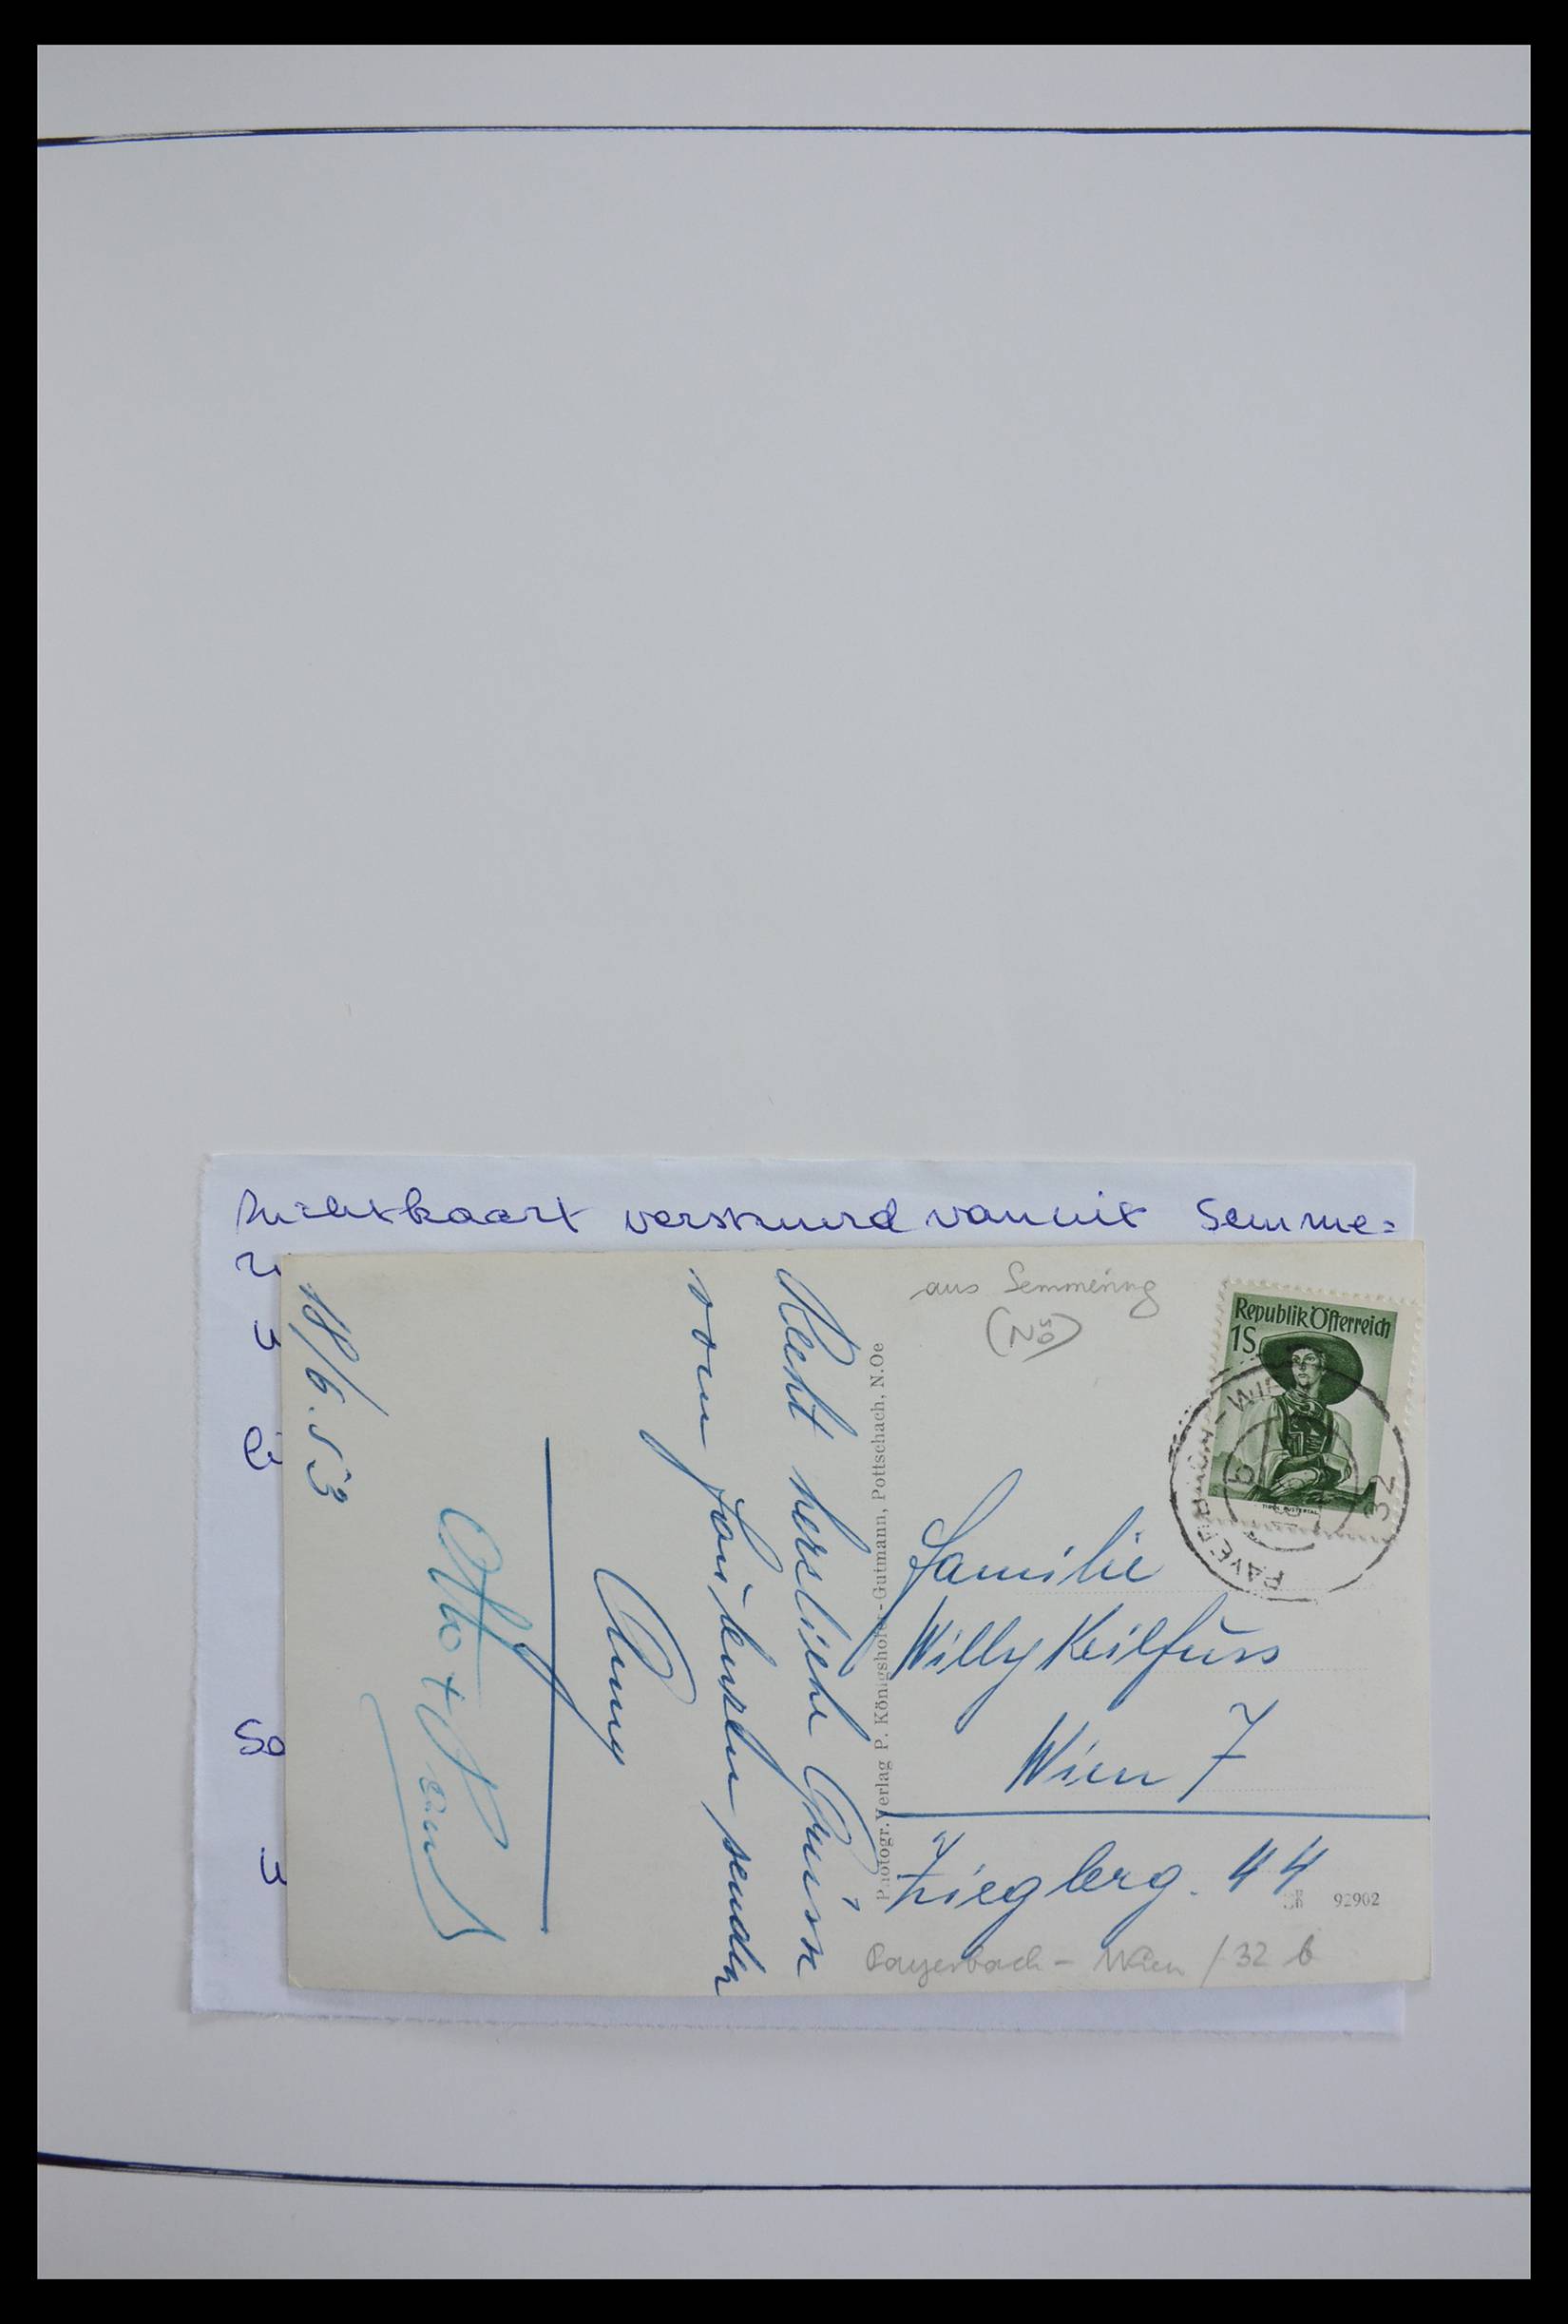 verstuurd vanuit Semme=
aus Semmering
(NÖ)
Republik Österreich
1S
PAYERBACH-WIEN
32
b
Familie
Willy Keilfuss
Wien 7
Zieglerg. 44
92902
Payerbach - Wien / 32 b
Photogr. Verlag P. Königshofer-Gutmann, Pottschach, N.Oe
Recht herzliche Grüsse
vom senden
Otto +
18/6.53
So